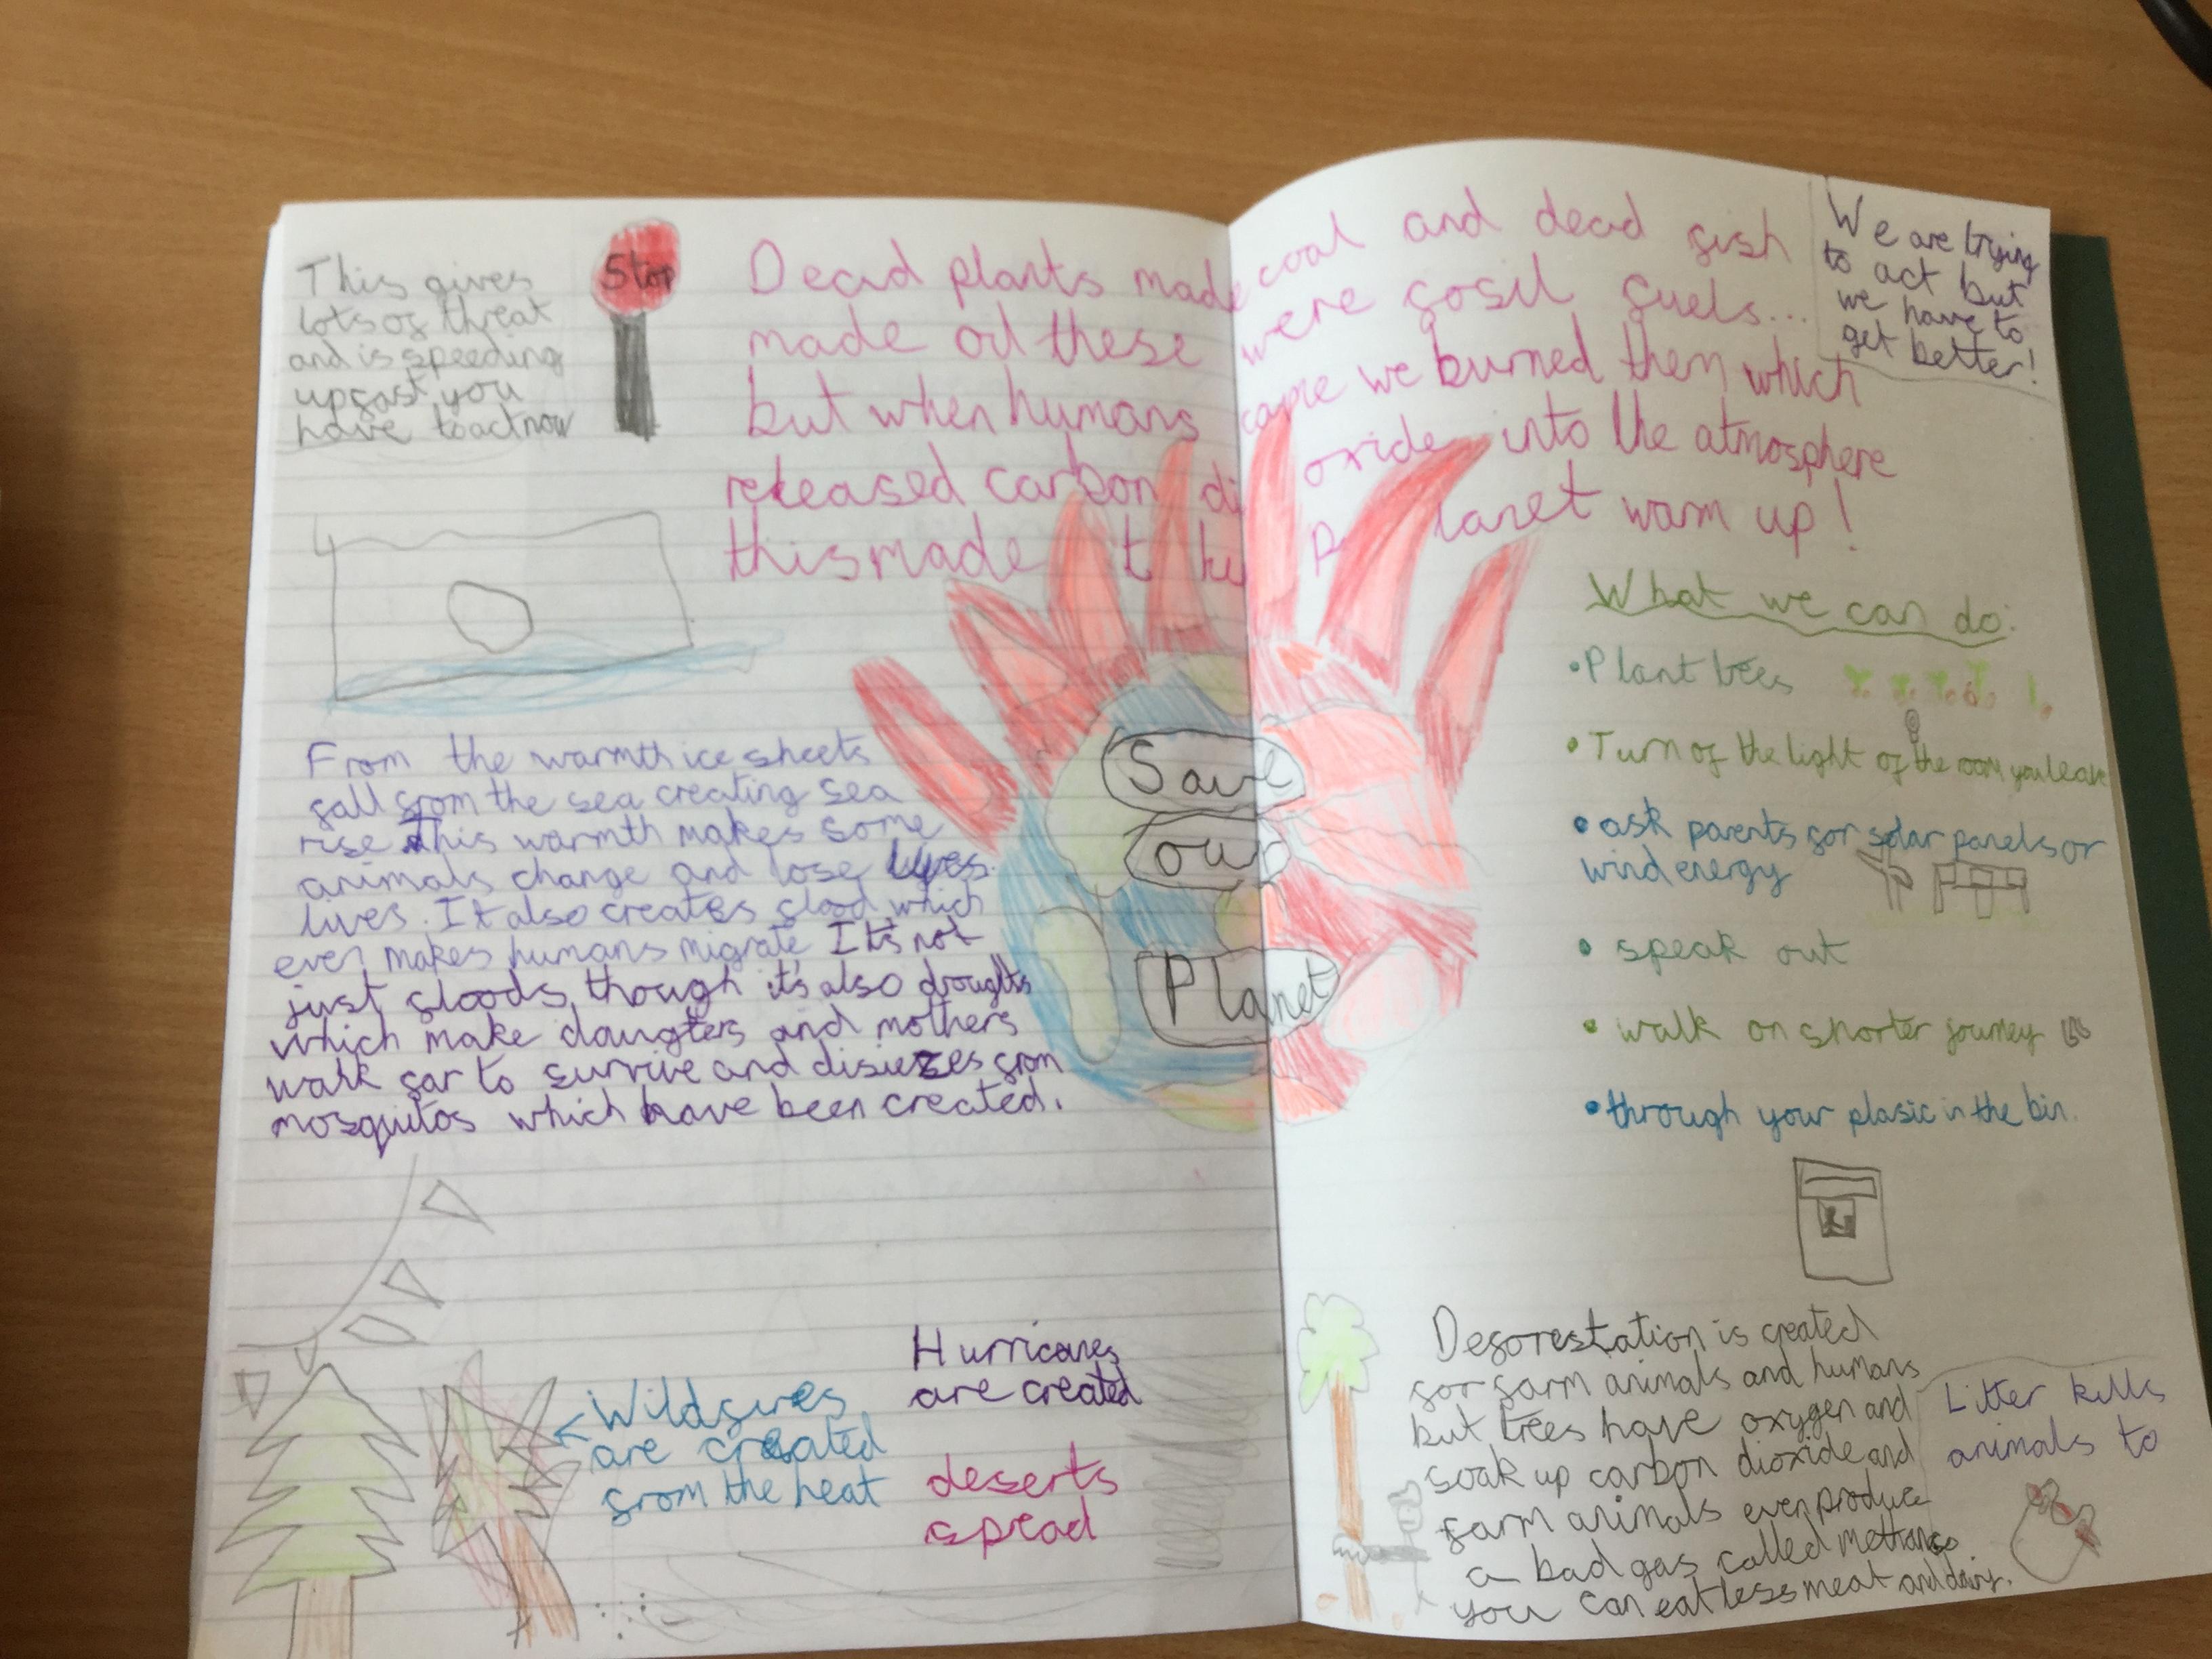 This gives
lots of threat
and is speeding
up fast you
have to act now
Stop
Dead plants made coal and dead fish
made oil these were fosil fuels...
but when humans came we burned them which
released carbon dioxide into the atmosphere
this made t planet warm up!
We are trying
to act but
we have to
get better!
Save
our
Planet
From the warmth ice sheets
fall from the sea creating sea
rise This warmth makes some
animals change and lose
lives. It also creates flood which
even makes humans migrate It's not
just floods, though it's also droughts
which make daugters and mothers
walk far to survive and from
mosquitos which have been created.
What we can do:
• Plant trees
• Turn of the light of the room you leave
• ask parents for solar panels or
wind energy
• speak out
• walk on shorter journey
• through your plasic in the bin.
Wildfires
are created
from the heat
Hurricanes
are created
deserts
spread
Deforestation is created
for farm animals and humans
but trees have oxygen and
soak up carbon dioxide and
farm animals even produce
a bad gas called
you can eat less meat and
Litter kills
animals to